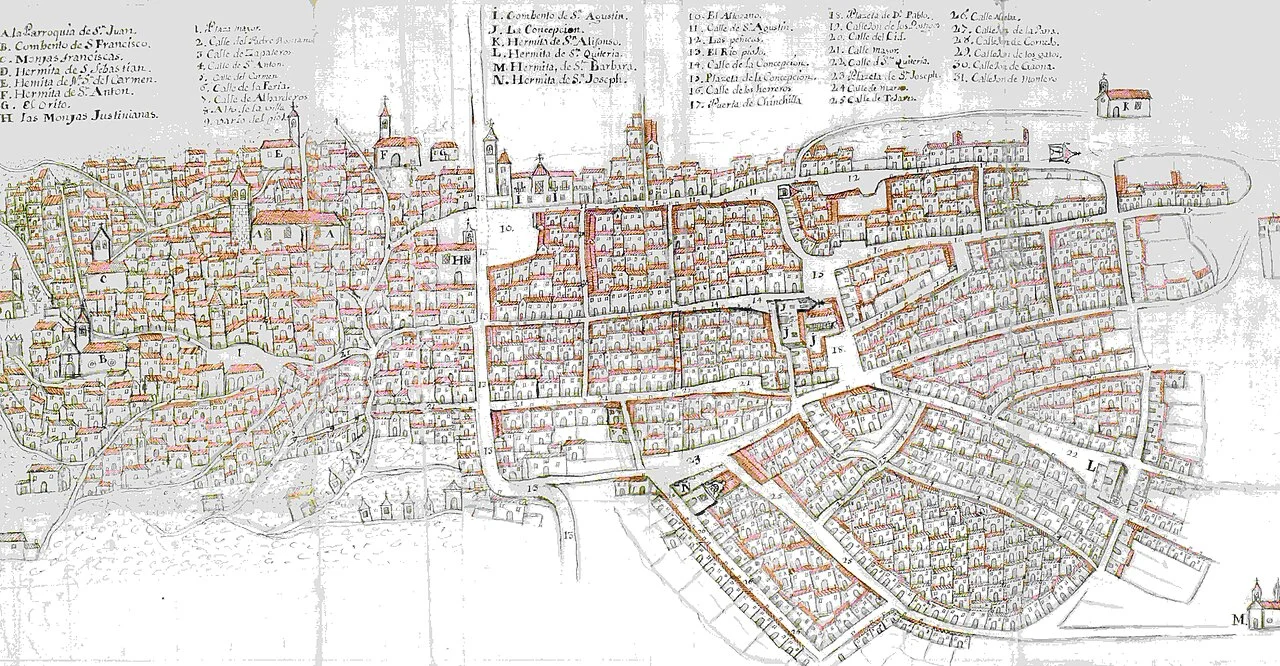 A la Parroquia de Sn. Juan.
B. Combento de S Francisco.
C. Monjas franciscas.
D. Hermita de S. Sebastian.
E. Hermita de Sra. del Carmen.
F. Hermita de S. Anton.
G. El Orito.
H las Monjas Justinianas.
1. Plaza mayor.
2. Calle del
3. Calle de Zapateros
4. Calle de S. Anton
5. Calle del Carmen
6. Calle de la Feria.
7. Calle de Albarderos
8. Alto de la villa
9.
I. Combento de Sn. Agustin.
J. La Concepcion.
K. Hermita de Sn. Alifonso.
L. Hermita de Sta. Quiteria.
M. Hermita, de Sta. Barbara.
N. Hermita, de Sn. Joseph.
10. El Altozano.
11. Calle de Sn. Agustin.
12. Las peñicas
13. El Rio piojo.
14. Calle de la Concepcion.
15. Plazeta de la Concepcion.
16. Calle de los herreros
17. Puerta de Chinchilla
18. Plazeta de Dn. Pablo.
19. Callejon de los
20. Calle del Cid.
21. Calle mayor.
22. Calle de Sta. Quiteria.
23. Plazeta de Sn. Joseph.
24. Calle de
25. Calle de Tejares.
26. Calle
27. Callejon de la Parra.
28. Callejon de Cornejo.
29. Callejon de los gatos.
30. Callejon de Gaona.
31. Callejon de Montero
E
F
G
K
A
A
C
B
H
1
10.
11
12
15
15
14
J
18.
13
21
13
13
13
23
N
25
25
22
L
M.